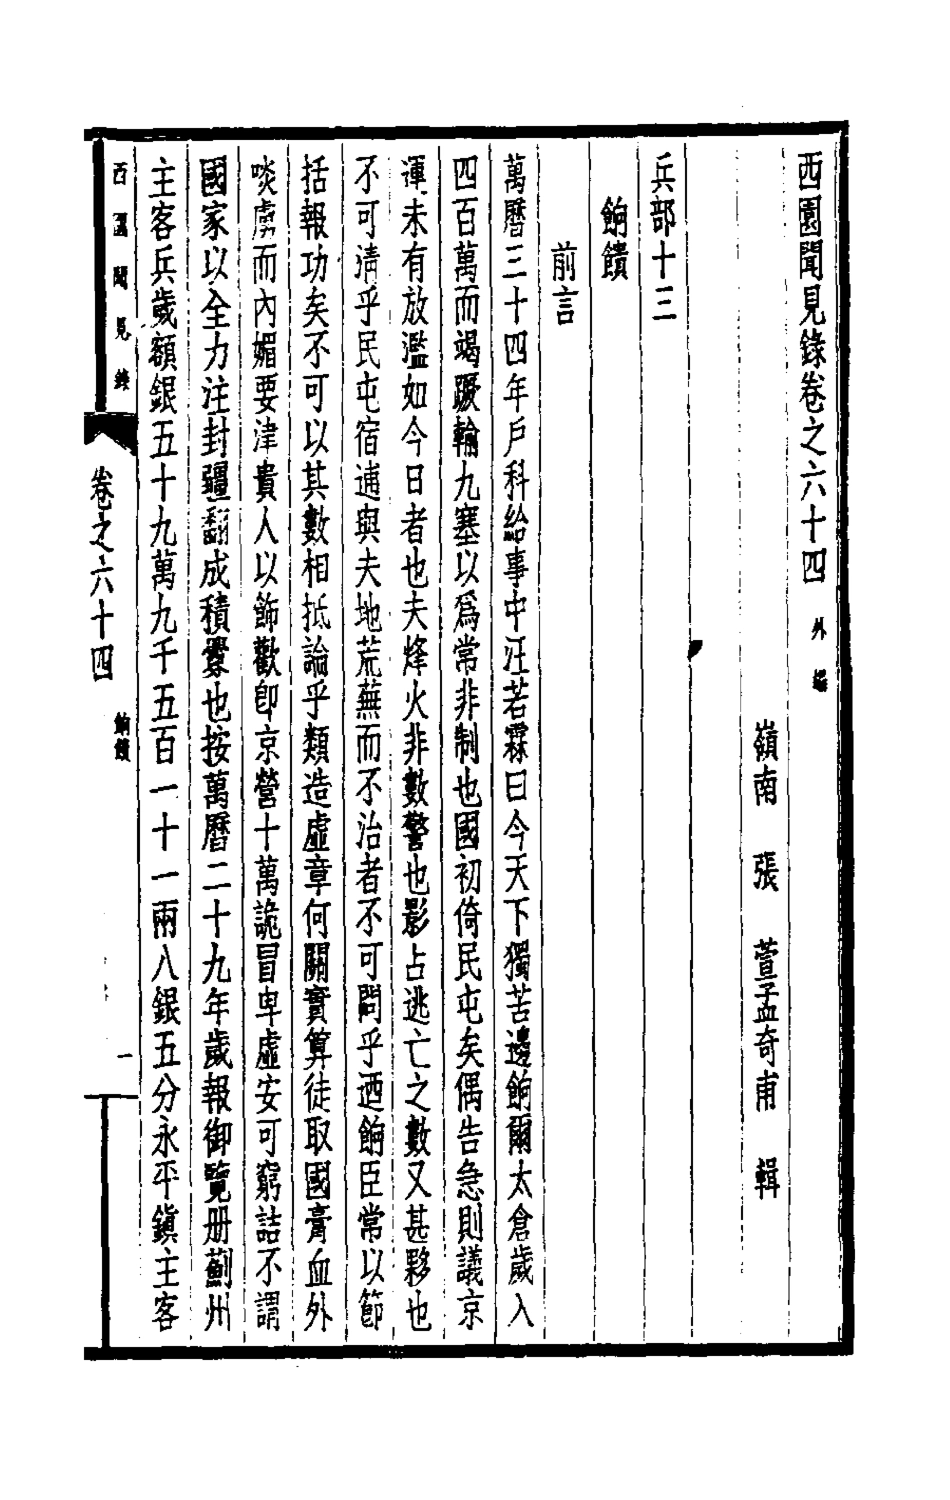 西園聞見錄卷之六十四 外編
嶺南 張 萱孟奇甫 輯
兵部十三
餉饋
前言
萬曆三十四年戶科給事中汪若霖曰今天下獨苦邊餉爾太倉歲入
四百萬而竭蹶輸九塞以爲常非制也國初倚民屯矣偶告急則議京
運未有放濫如今日者也夫烽火非數警也影占逃亡之數又甚夥也
不可清乎民屯宿逋與夫地荒蕪而不治者不可問乎迺餉臣常以節
括報功矣不可以其數相抵論乎類造虛章何關實算徒取國膏血外
啖虜而內媚要津貴人以飾歡卽京營十萬詭冒卑虛安可窮詰不謂
國家以全力注封疆翻成積釁也按萬曆二十九年歲報御覽册薊州
主客兵歲額銀五十九萬九千五百一十一兩八銀五分永平鎭主客
西園聞見錄
卷之六十四
餉饋
一